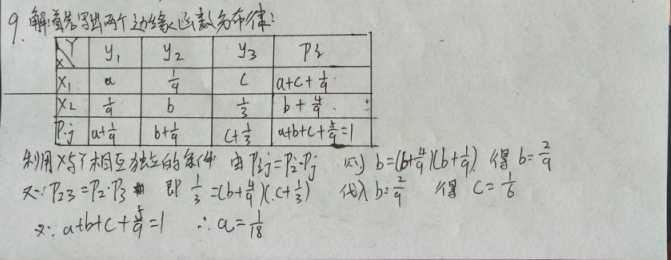 9. 解:首先写出两个边缘函数分布律:
X Y y₁ y₂ y₃ Pi
X₁ a 1/9 c a+c+1/9
X₂ 1/9 b 1/3 b+4/9
P·j a+1/9 b+1/9 c+1/3 a+b+c+5/9=1
利用X与Y相互独立的条件 由Pij=Pi·Pj 则 b=(b+4/9)(b+1/9) 得 b=2/9
又∵P₂₃=P₂·P₃ 即 1/3=(b+4/9)(c+1/3) 代入b=2/9 得 c=1/6
又∵a+b+c+5/9=1 ∴a=1/18